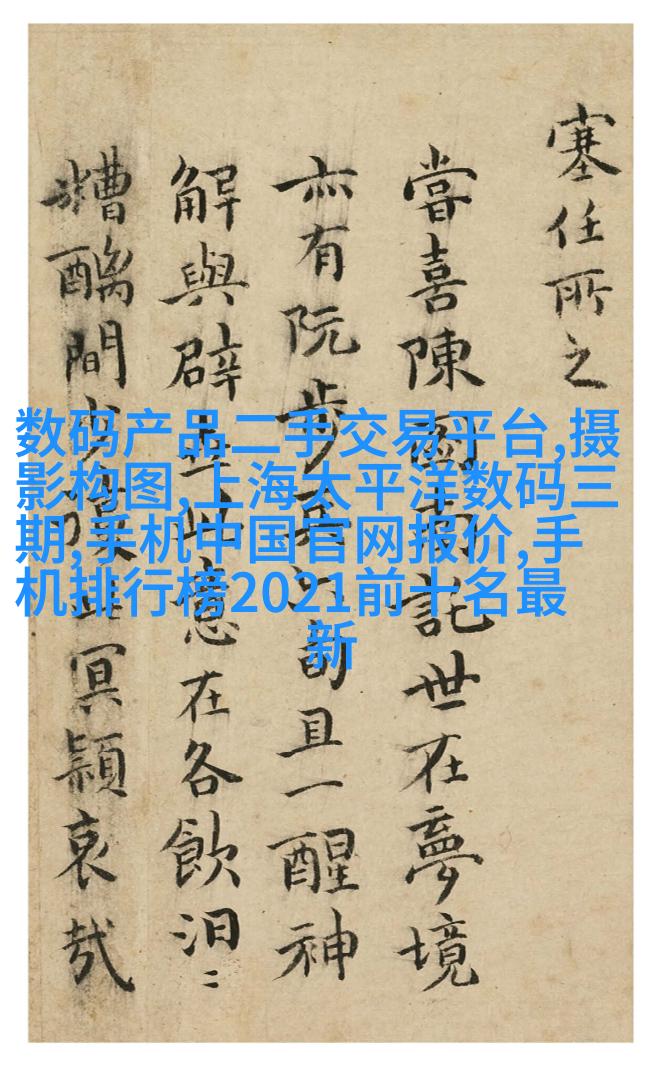 塞任所之
嘗喜陳南託世在夢境
亦有阮步且一醒神
解與辟此意在各飲汨〻
糟醨間冥哀哉
数码产品二手交易平台,摄
影构图,上海太平洋数码三
期,手机中国官网报价,手
机排行榜2021前十名最
新